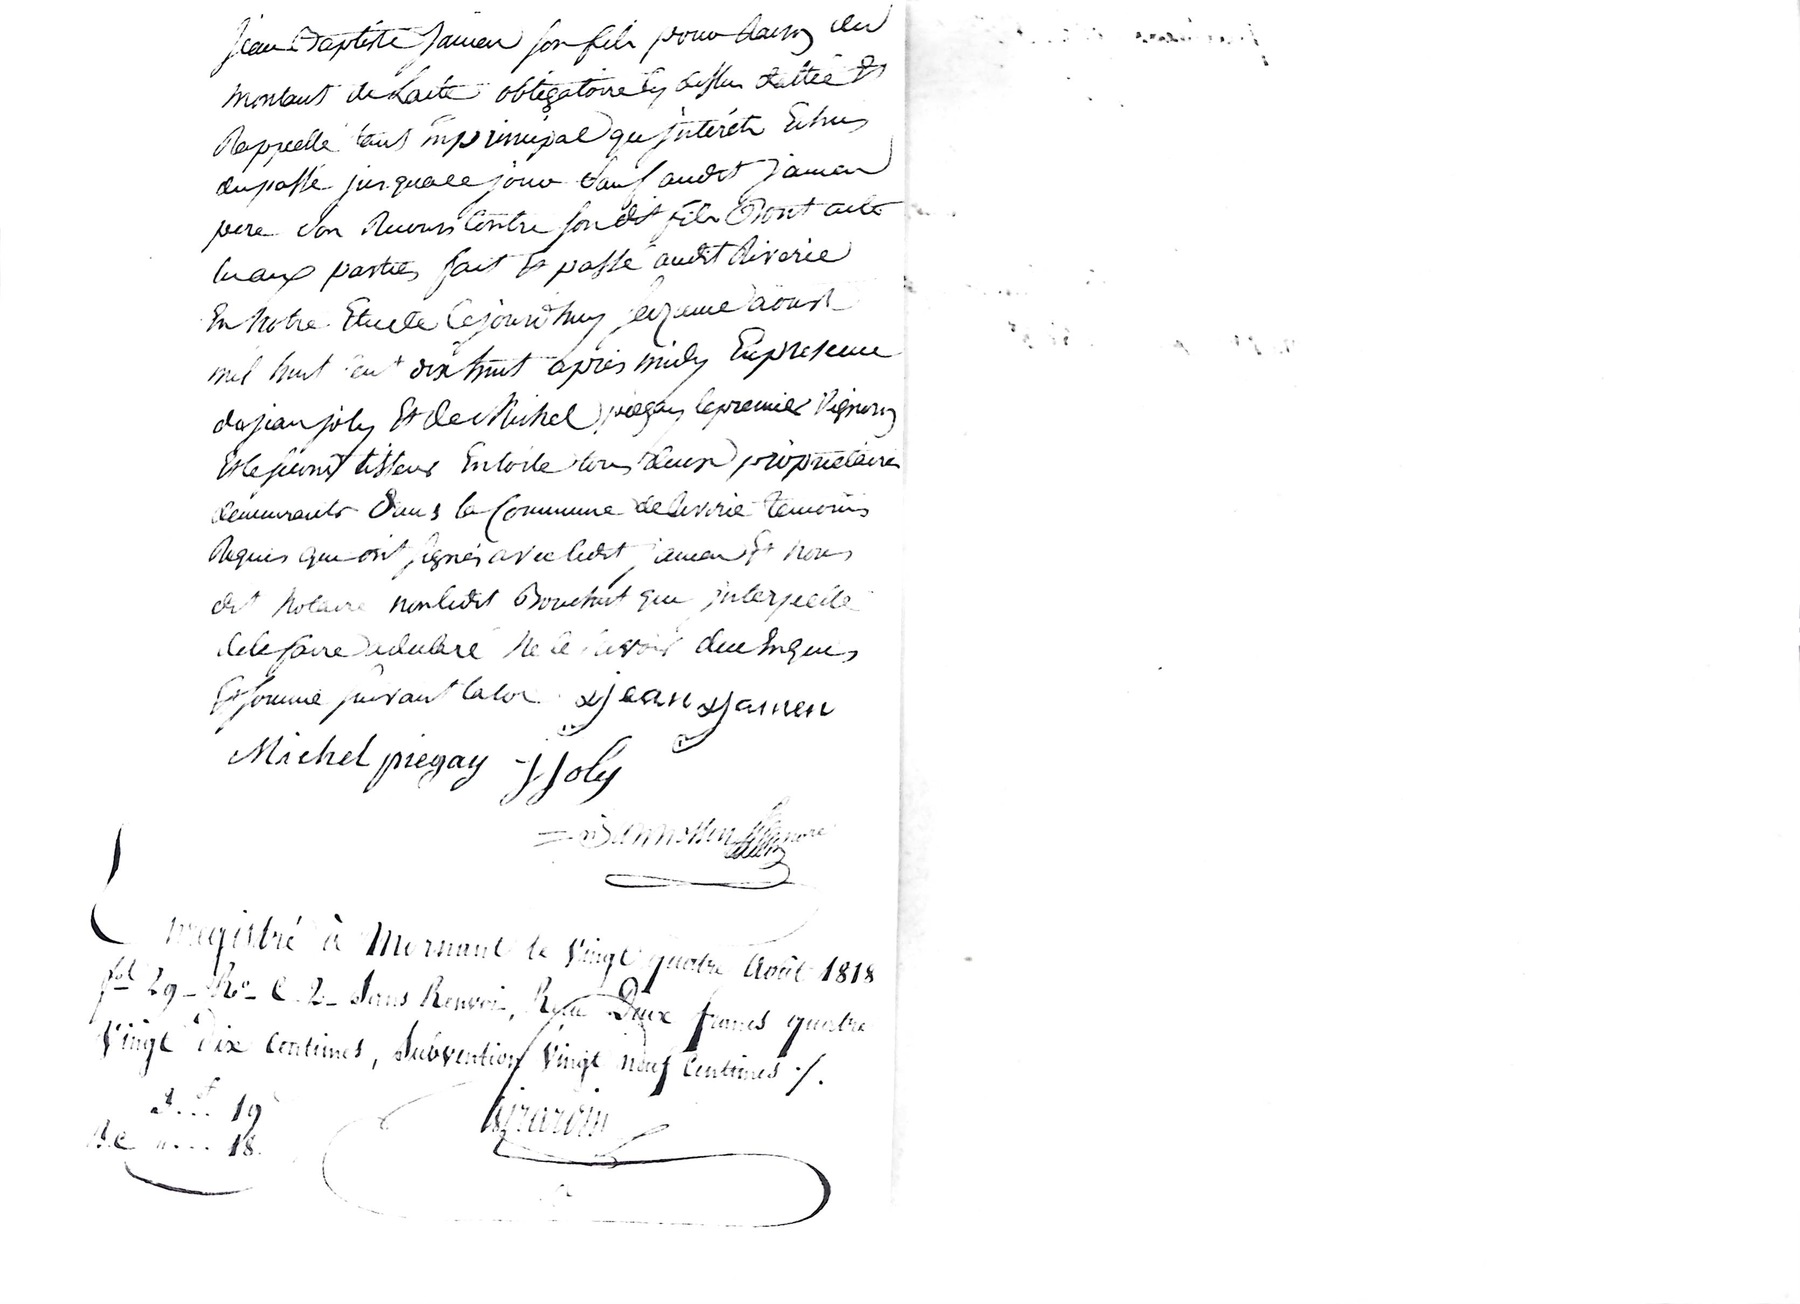 Jean Baptiste Jamen son fils pour raison du
montant de l'acte obligatoire cy dessus datté et
Rappellé tant En principal que jnterêts Echus
du passé jusqua ce jour sauf audit jamen
pere son Recours Contre son dit fils Dont acte
lu aux parties fait et passé audit Riverie
En notre Etude Cejourd'huy seizieme aoust
mil huit cent dix huit après midy En presence
de jean joly Et de Michel piegay le premier Vigneron
Et le second tisseur En toile tous deux propriétaires
demeurants dans la Commune de Riverie temoins
Requis qui ont signés avec ledit jamen Et nous
dit Notaire non ledit Bouchut qui jnterpellé
de le faire a declaré ne le savoir duement Enquis
Et sommé suivant la loi. jean jamen
Michel piegay J Joly
Enregistré à Mornant le Vingt quatre Août 1818
fol 29 Ro C. 2 Sans Renvoi, Reçu Deux francs quatre
Vingt dix centimes, Subvention Vingt neuf Centimes ./.
2.. f 19
18.
Girardin